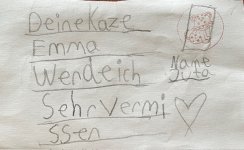 DeineKaze
Emma
Werdeich
Sehrvermi
SSen
Name
Juta